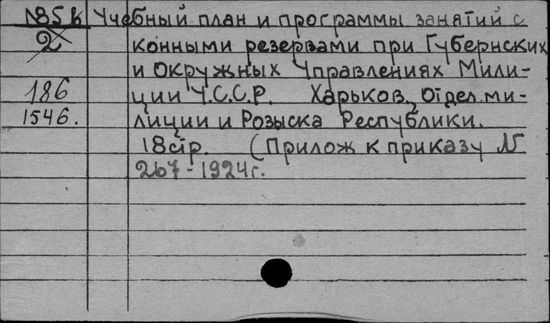 N85 k Учебный план и программы занятий с
2 конными резервами при Губернских
и Окружных Управлениях Мили-
186 ции У.С.С.Р. Харьков, Отдел. ми-
1546. лиции и Розыска Республики.
18стр. (Прилож к приказу N
267-1924г.